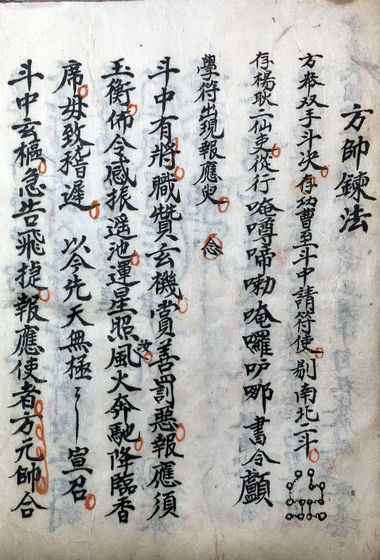 方帥鍊法
方咨双手斗次存功曹至斗中請符使剔南北二斗
存楊耿二仙吏從行唵噂啼嘞唵囉吣哪書令顱
學符出現報應兒 念
斗中有將職贊玄機賞善罰惡報應須
玉衡佈令感振遥池運星照風火奔馳降臨香
改
席毋致稽遲 以今先天無極 宣召
斗中玄樞急告飛捷報應使者方元帥合